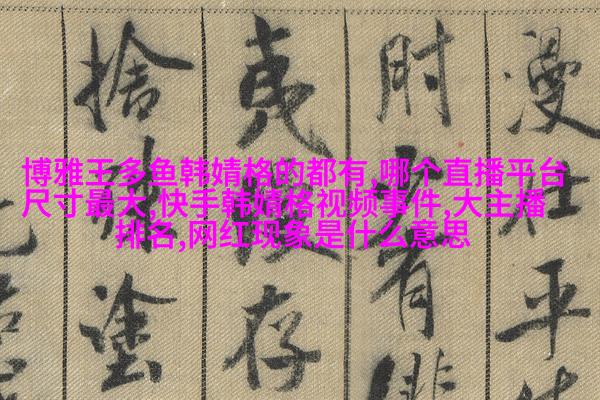 博雅王多鱼韩婧格的都有,哪个直播平台
尺寸最大,快手韩婧格视频事件,大主播
排名,网红现象是什么意思
漫平
时有
夷存
捨塗